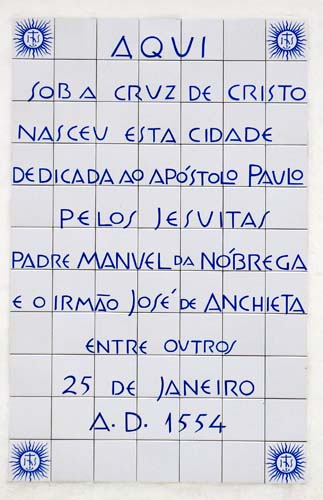 AQUI
SOB A CRUZ DE CRISTO
NASCEU ESTA CIDADE
DEDICADA AO APÓSTOLO PAULO
PELOS JESUITAS
PADRE MANUEL DA NÓBREGA
E O IRMÃO JOSÉ DE ANCHIETA
ENTRE OUTROS
25 DE JANEIRO
A. D. 1554